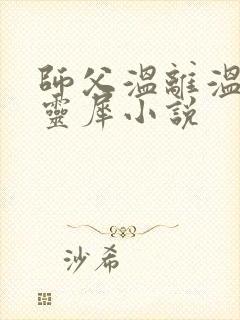 師父溫離溫
靈犀小說
沙希